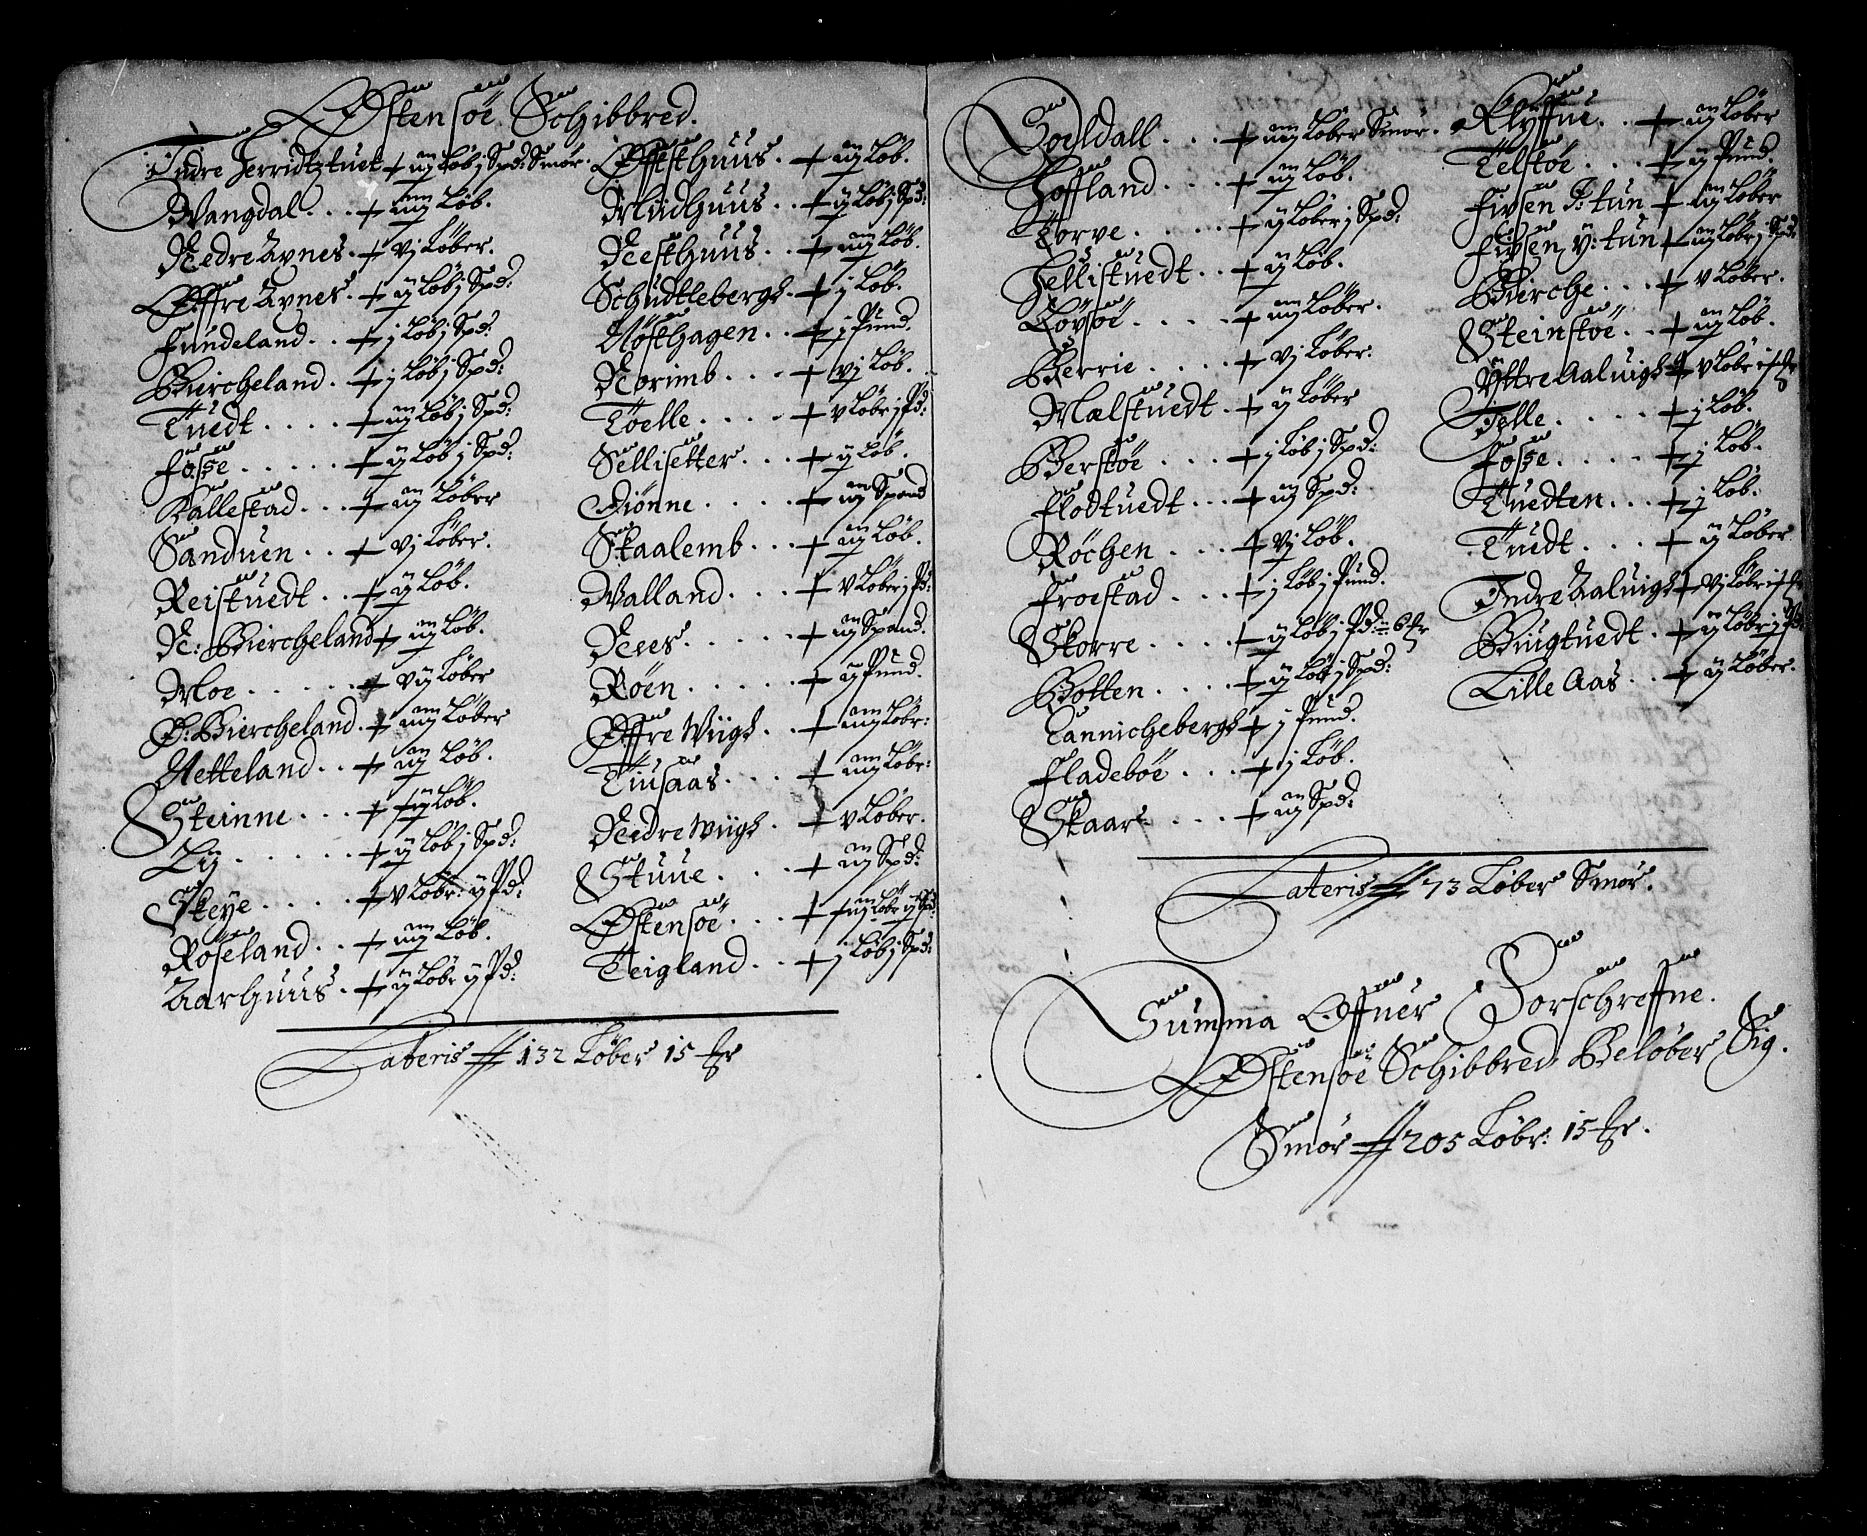 Østensøe Schibbred.
Indre Jerridtztuet + iij Løb j Spd: Smør.
Wangdal . . . + iiij Løb.
Nedre Axnes . + vj Løber.
Øffre Axnes . + ij Løb j Spd:
Fundeland . . + j Løb j Spd:
Biercheland . + j Løb j Spd:
Tuedt . . . . + iij Løb j Spd:
Fosse . . . . . + ij Løb j Spd:
Kallestad . . . + iij Løber
Sanduen . . + vj Løber.
Reistuedt . . + ij Løb.
N: Biercheland + iij Løb.
Moe . . . . . . + vij Løber
Ø: Biercheland . + iiij Løber
Netteland . . + iij Løb.
Steinne . . . + ij Løb.
Lij . . . . . . + ij Løb j Spd:
Skeye . . . . . + v Løbr: ij Pd:
Røseland . . + iiij Løb.
Aarhuus . + ij Løbr ij Pd:
Øffsthuus . . + iij Løb.
Midhuus . . + ij Løb j Spd:
Nesthuus . . + iiij Løb.
Schudtlebergh . + j Løb.
Nøsthagen . . + j Pund.
Norimb . . . + vj Løb.
Tøelle . . . . + v Løbr j Pd:
Sellisetter . . . + ij Løb.
Diønne . . . . + iij Spand
Skaalemb . . . + iij Løb.
Walland . . . + v Løber j Pd:
Nees . . . . . + iij Spand.
Røen . . . . . + ij Pund.
Øffre Wiigh . . + iiij Løbr:
Tiusaas . . . . + iiij Løbr:
Nedre Wiigh . + v Løber.
Stuue . . . . + iij Spd:
Østensøe . . . + Løbr ij Spd:
Teigland . . + j Løb j Spd:
Lateris # 132 Løber 15 ℔
Soeldall . . . + iiij Løber Smør.
Hoffland . . . + iij Løb.
Torve . . . . . + ij Løber j Spd:
Jellistuedt . . + ij Løb.
Løvsøe . . . . . + iiij Løber.
Berrie . . . . + vj Løber:
Mælstuedt . + ij Løber
Berstøe . . . + j Løb j Spd:
Flodtuedt . . . + iij Spd:
Røchen . . . . + vj Løb.
Froestad . . . + j Løb j Pund.
Skorre . . . . + ij Løb j Pd: = 6 ℔
Botten . . . . + ij Løb j Spd:
Tannichebergh + j Pund.
Fladebøe . . . + j Løb.
Skaar . . . . + iij Spd:
Klyffue . . + iij Løber
Telstøe . . . + ij Pund.
Fixsen I: tun + iij Løber
Fixsen Y: tun + iij Løbr j Spd:
Bierche . . . + v Løber.
Steinstøe . . + iij Løb.
Yttre Aaluigh + v Løbr
Tølle . . . . . + j Løb.
Fosse . . . . . + j Løb.
Tuedten . . . + j Løb.
Tuedt . . . . + ij Løber
Indre Aaluigh + vj Løbr
Bugtuedt . + ij Løbr j Pd:
Lille Aas . . + ij Løber.
Lateris # 73 Løber Smør.
Summa Offuer Forschreffne.
Østensøe Schibbred Beløber Sig.
Smør # 205 Løbr: 15 ℔.